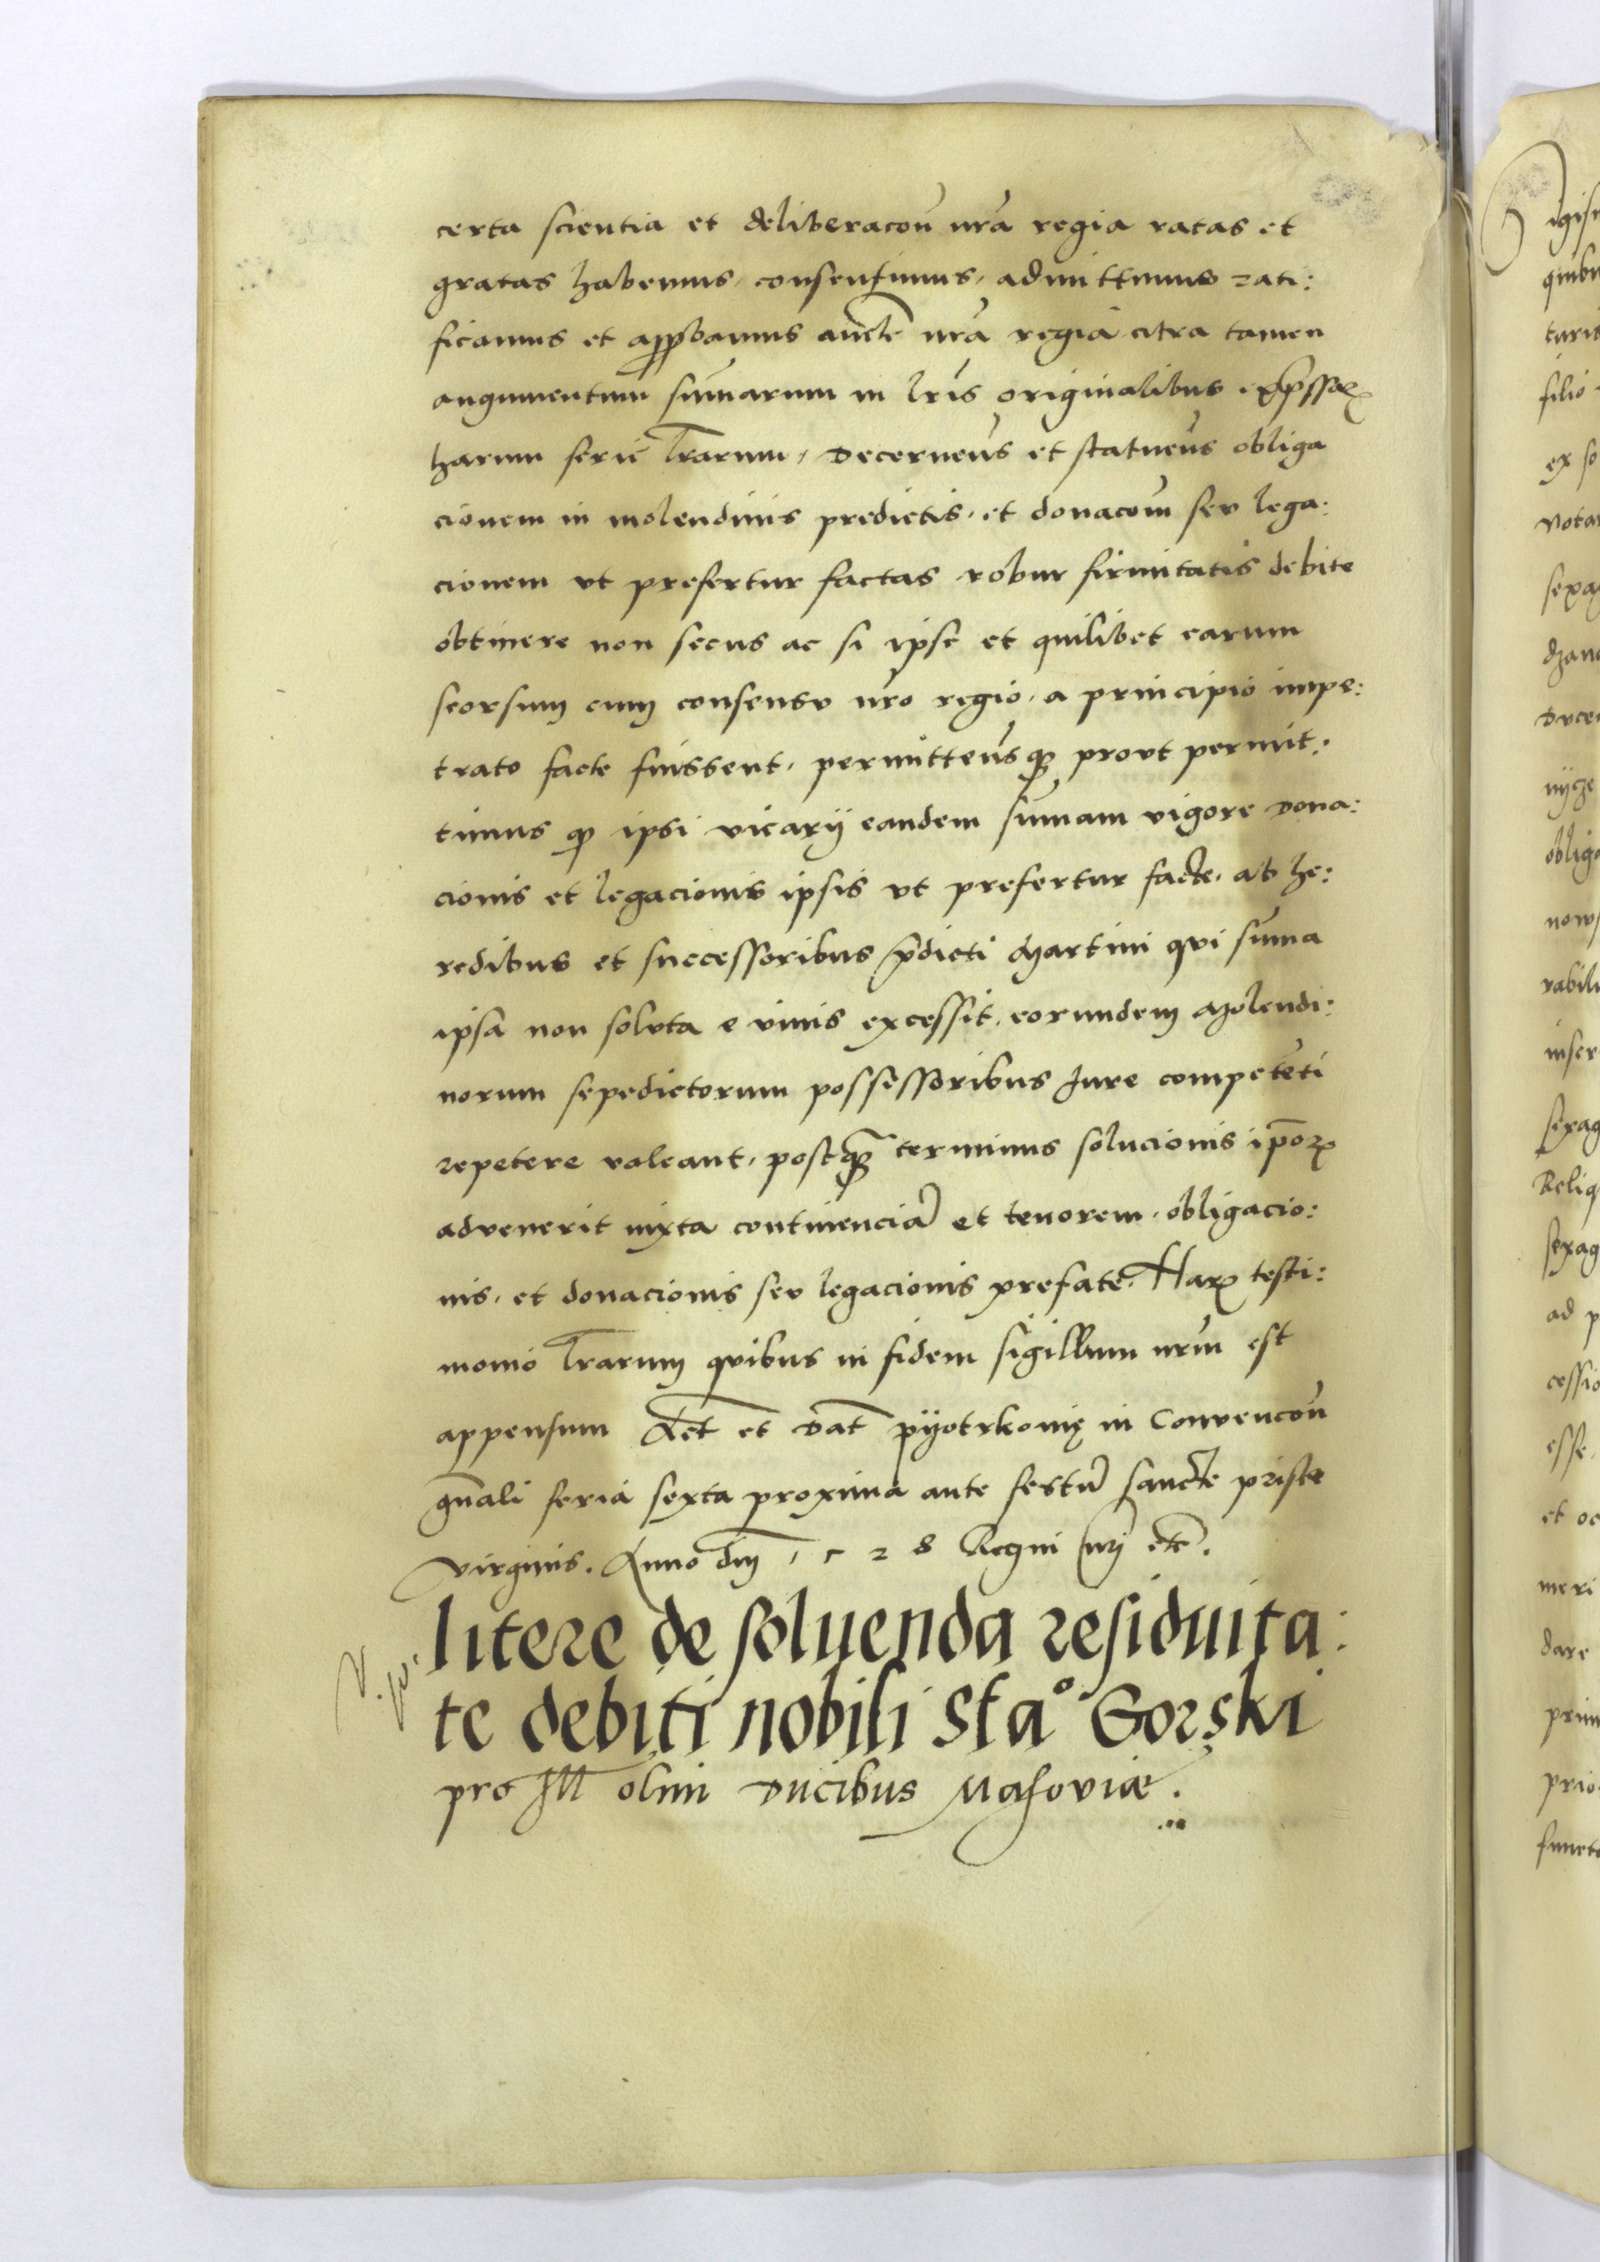 certa scientia et deliberacoñ nrã regia ratas et
gratas habemus, consentimus, admittimus rati:
ficamus et approbamus aucte nrã regia citra tamen
augumentum sum̃arum in lr̃is originalibus exp̃ssaꝝ
harum serie lr̃arum, decernen̄s et statuen̄s obliga
cionem in molendinis predictis, et donacom̄ seu lega:
cionem vt prefertur factas robur firmitatis debite
obtinere non secus ac si ipse et quilibet earum
seorsum cum consensu nr̃o regio, a principio impe:
trato facte fuissent, permitten̄sqꝫ prout permit:
timus qꝫ ipsi vicarij eandem sum̃am vigore dona:
cionis et legacionis ipsis vt prefertur facte, ab he:
redibus et successoribus p̃dicti Martini qui sum̃a
ipsa non soluta e viuis excessit, eorundem Molendi:
norum sepedictorum possessoribus Jure competẽti
repetere valeant, postqꝫ̃ terminus solucionis ip̃oꝝ
aduenerit iuxta continenciã et tenorem, obligacio:
nis, et donacionis seu legacionis prefate. Haꝝ testi:
monio lr̃arum quibus in fidem sigillum nr̃m est
appensum Act̃ et dat̃ pyotrkouię in Conuencoñ
gñali feria sexta proxima ante festũ sancte prisce
virginis. Anno dnj̃ 1528 Regni nrj̃ etc̃.
litere de soluenda residuita:
te debiti nobili Staº Gorski
pro Ill olim ducibus Masoviæ.